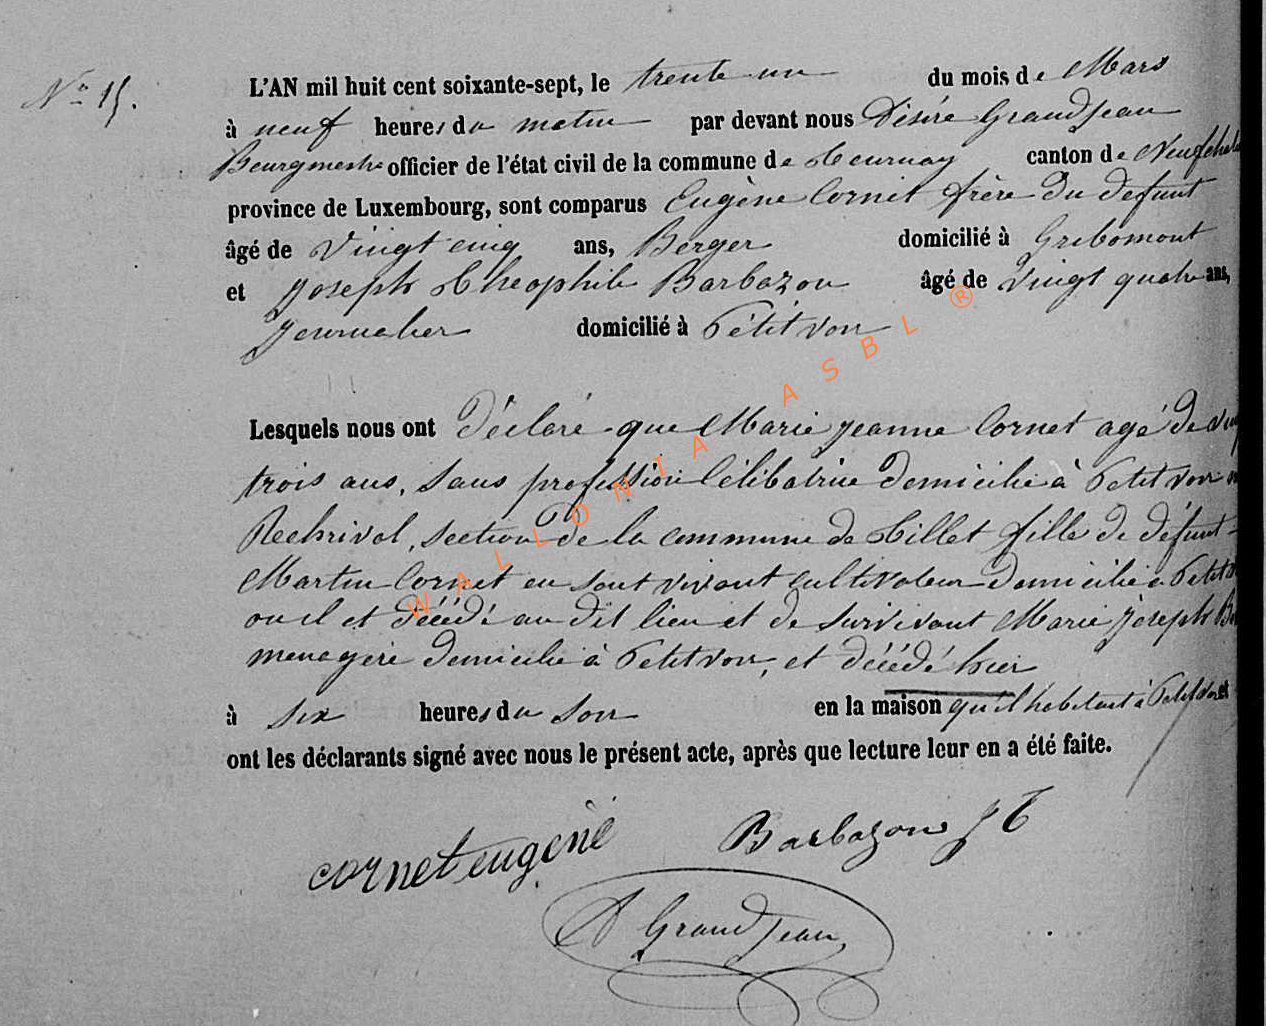 N° 15.
L'AN mil huit cent soixante-sept, le trente un du mois de Mars
à neuf heures du matin par devant nous Désiré Grandjean
Bourgmestre officier de l'état civil de la commune de Tournay canton de Neufchat
province de Luxembourg, sont comparus Eugène Cornet frère du defunt
âgé de vingt cinq ans, Berger domicilié à Gribomont
et Joseph Théophile Barbazon âgé de vingt quatre ans,
Journalier domicilié à Petitvoir
Lesquels nous ont Déclaré que Marie jeanne Cornet agé de
trois ans, sans profession Célibatrice domicilié à Petitvoir
Rechrival, section de la commune de Tillet fille de défunt
Martin Cornet en sont vivant cultivateur domicilié à Petitv
ou il et décédé au dit lieu et de survivant Marie joseph
menagère domicilié à Petitvoir, et décédé hier
à six heures du soir en la maison qu'il habitait à Petitvoir et
ont les déclarants signé avec nous le présent acte, après que lecture leur en a été faite.
cornet eugène Barbazon J T
D Grandjean
WALLONIA ASBL ®